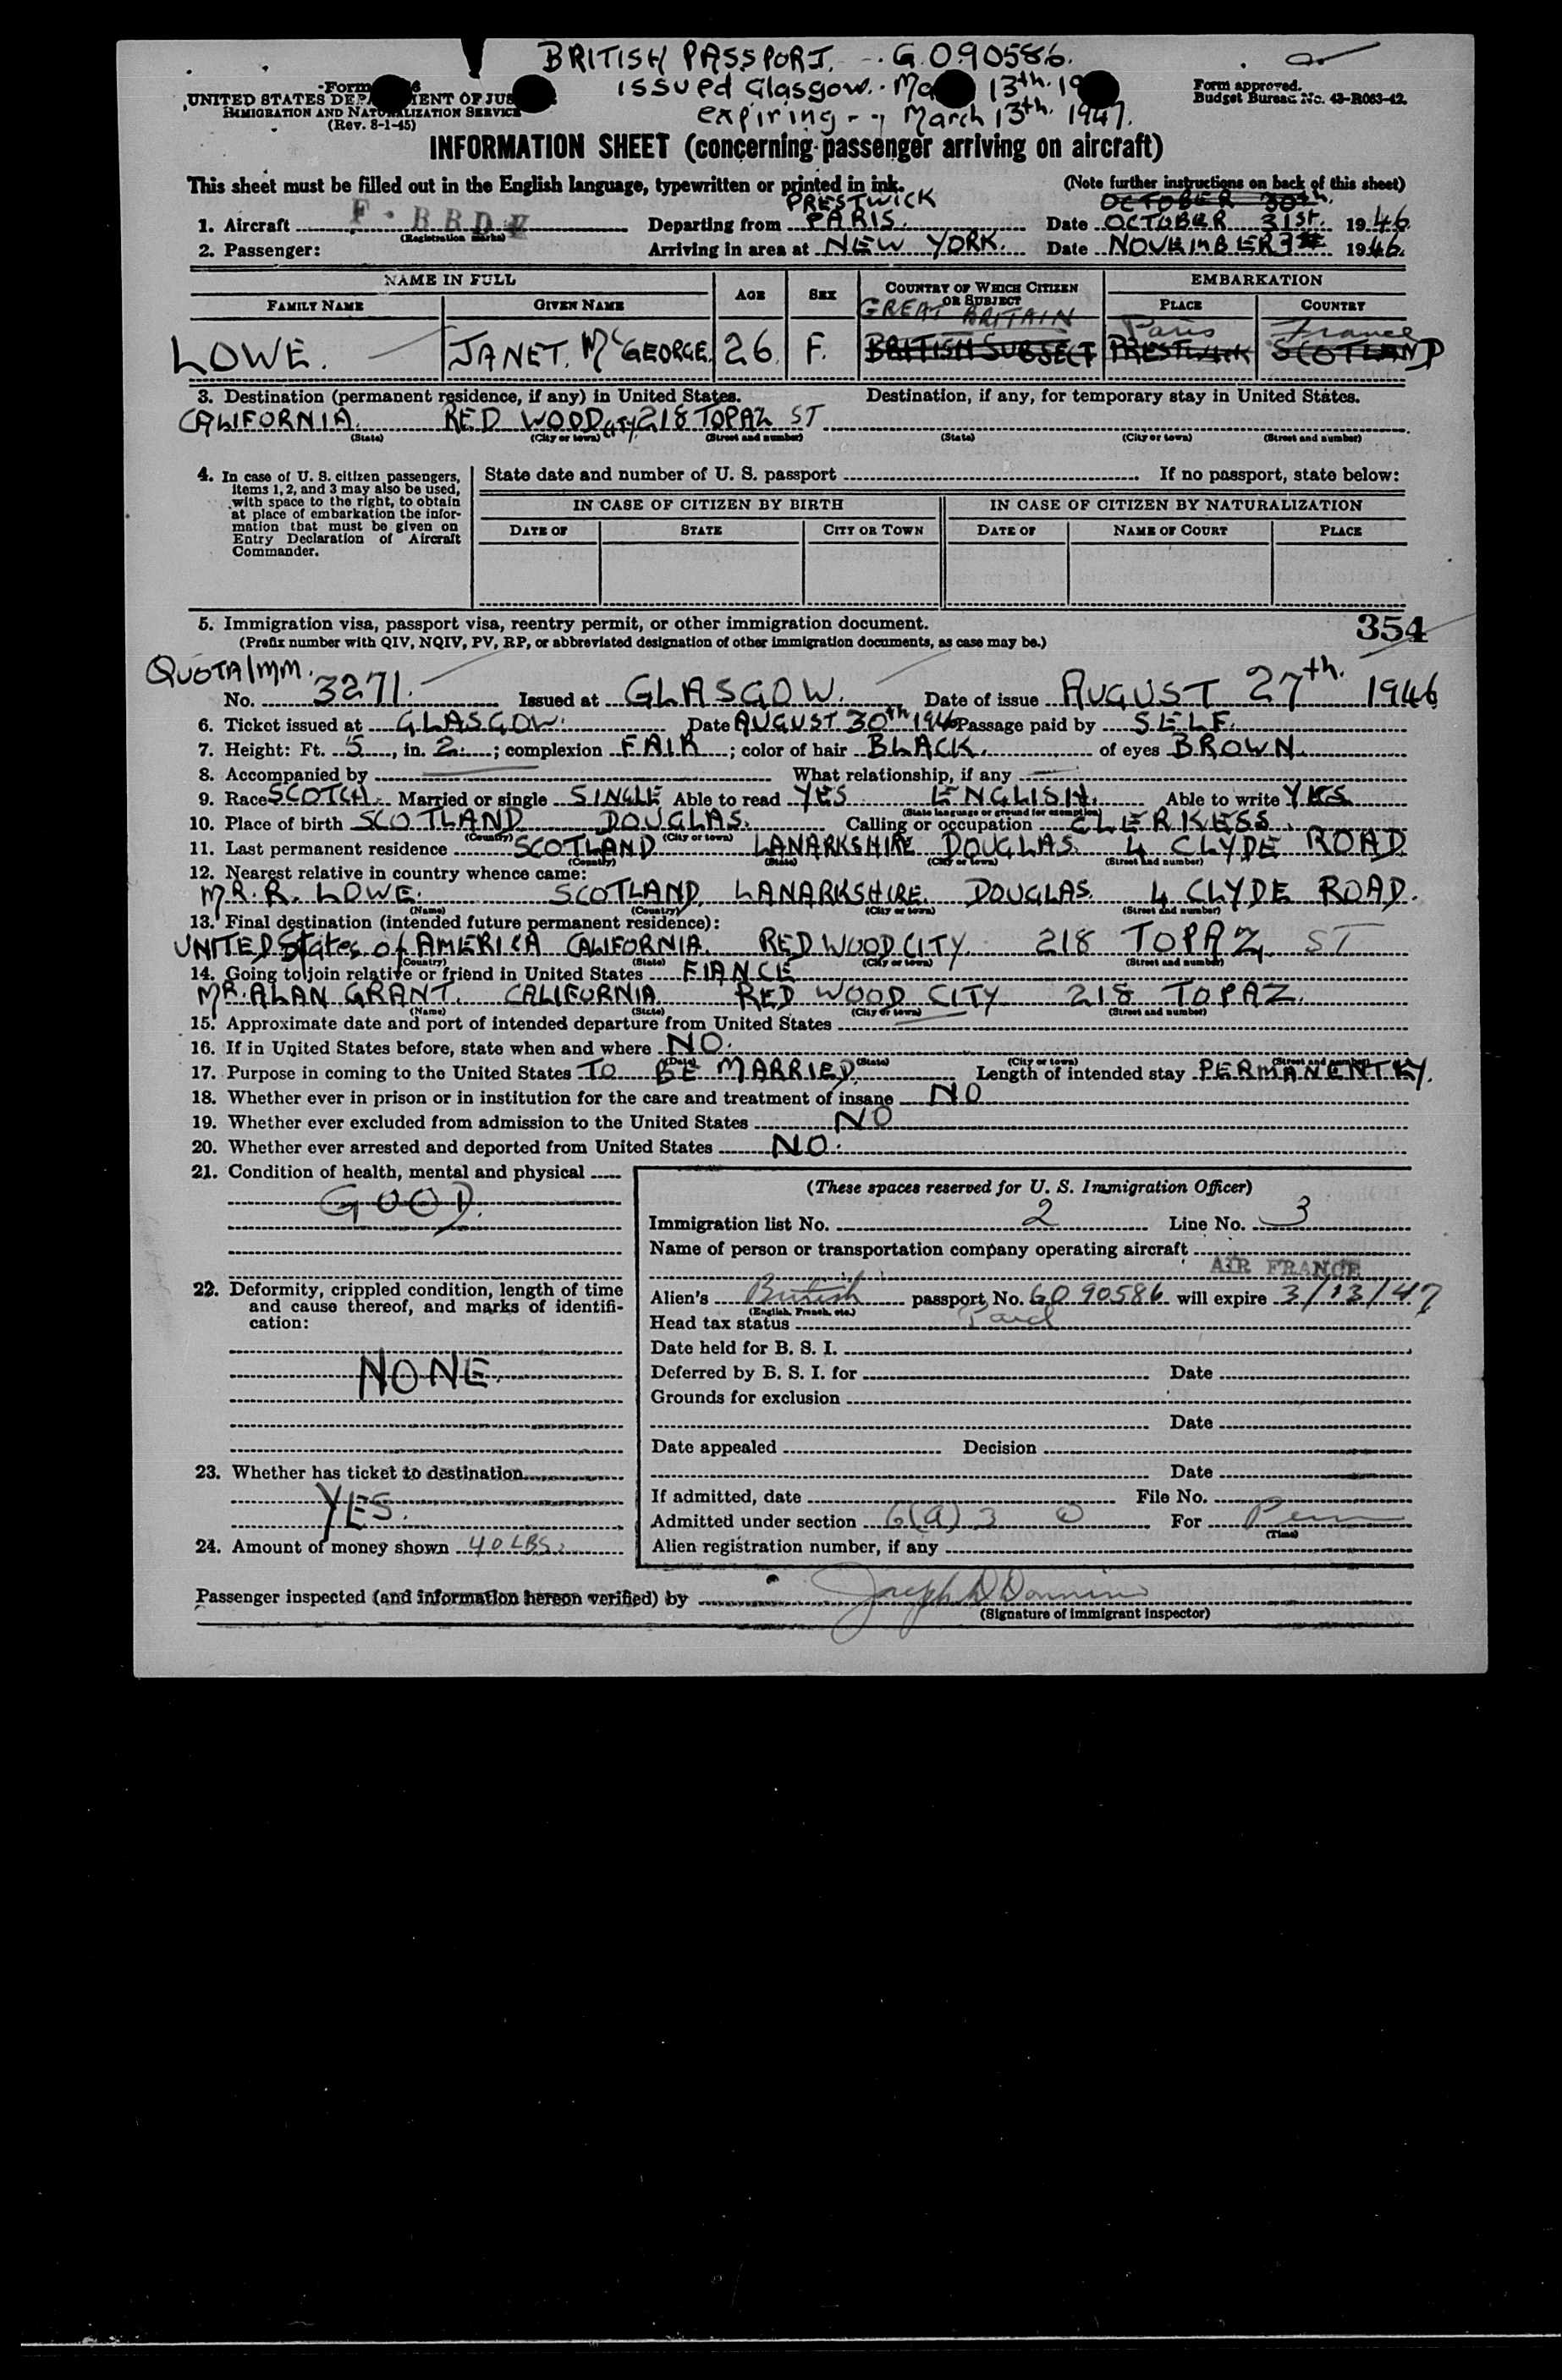 BRITISH PASSPORT. G.090586.
issued Glasgow. 13th. 19
expiring -., March 13th. 1947.
Form
UNITED STATES DEPARTMENT OF JUSTICE
IMMIGRATION AND NATURALIZATION SERVICE
(Rev. 8-1-45)
Form approved.
Budget Bureau No. 43-R063-42.
INFORMATION SHEET (concerning passenger arriving on aircraft)
This sheet must be filled out in the English language, typewritten or printed in ink.
(Note further instructions on back of this sheet)
PRESTWICK OCTOBER 30th.
1. Aircraft F. BBD Departing from PARIS. Date OCTOBER 31st. 1946
(Registration marks)
2. Passenger: Arriving in area at NEW YORK. Date NOVEMBER 1946.
NAME IN FULL AGE SEX COUNTRY OF WHICH CITIZEN OR SUBJECT EMBARKATION
FAMILY NAME GIVEN NAME PLACE COUNTRY
GREAT BRITAIN Paris France
LOWE. JANET. McGEORGE. 26 F. BRITISH SUBJECT PRESTWICK SCOTLAND
3. Destination (permanent residence, if any) in United States. Destination, if any, for temporary stay in United States.
CALIFORNIA. RED WOOD CITY. 218 TOPAZ ST
(State) (City or town) (Street and number) (State) (City or town) (Street and number)
4. In case of U. S. citizen passengers, items 1, 2, and 3 may also be used, with space to the right, to obtain at place of embarkation the information that must be given on Entry Declaration of Aircraft Commander.
State date and number of U. S. passport If no passport, state below:
IN CASE OF CITIZEN BY BIRTH IN CASE OF CITIZEN BY NATURALIZATION
DATE OF STATE CITY OR TOWN DATE OF NAME OF COURT PLACE
5. Immigration visa, passport visa, reentry permit, or other immigration document.
(Prefix number with QIV, NQIV, PV, RP, or abbreviated designation of other immigration documents, as case may be.)
354
QUOTA IMM.
No. 3271. Issued at GLASGOW. Date of issue AUGUST 27th. 1946
6. Ticket issued at GLASGOW. Date AUGUST 30th 1946 Passage paid by SELF.
7. Height: Ft. 5, in. 2.; complexion FAIR; color of hair BLACK. of eyes BROWN.
8. Accompanied by What relationship, if any
9. Race SCOTCH. Married or single SINGLE Able to read YES ENGLISH. Able to write YES
(State language or ground for exemption)
10. Place of birth SCOTLAND DOUGLAS. Calling or occupation CLERKESS.
(Country) (City or town)
11. Last permanent residence SCOTLAND LANARKSHIRE DOUGLAS. 4 CLYDE ROAD
(Country) (State) (City or town) (Street and number)
12. Nearest relative in country whence came:
MR. R. LOWE. SCOTLAND, LANARKSHIRE. DOUGLAS. 4 CLYDE ROAD.
(Name) (Country) (City or town) (Street and number)
13. Final destination (intended future permanent residence):
UNITED States of AMERICA CALIFORNIA. RED WOOD CITY 218 TOPAZ ST
(Country) (State) (City or town) (Street and number)
14. Going to join relative or friend in United States FIANCE
MR. ALAN GRANT. CALIFORNIA RED WOOD CITY 218 TOPAZ.
(Name) (State) (City or town) (Street and number)
15. Approximate date and port of intended departure from United States
16. If in United States before, state when and where NO.
(Date) (State) (City or town) (Street and number)
17. Purpose in coming to the United States TO BE MARRIED. Length of intended stay PERMANENTLY.
18. Whether ever in prison or in institution for the care and treatment of insane NO
19. Whether ever excluded from admission to the United States NO
20. Whether ever arrested and deported from United States NO.
21. Condition of health, mental and physical
GOOD.
22. Deformity, crippled condition, length of time and cause thereof, and marks of identification:
NONE.
23. Whether has ticket to destination
YES.
24. Amount of money shown 40 LBS.
(These spaces reserved for U. S. Immigration Officer)
Immigration list No. 2 Line No. 3
Name of person or transportation company operating aircraft
AIR FRANCE
Alien's British passport No. GO 90586 will expire 3/13/47
(English, French, etc.)
Head tax status Paid
Date held for B. S. I.
Deferred by B. S. I. for Date
Grounds for exclusion
Date
Date appealed Decision
Date
If admitted, date File No.
Admitted under section 6(a) 3 For Perm
(Time)
Alien registration number, if any
Passenger inspected (and information hereon verified) by Joseph D Domino
(Signature of immigrant inspector)